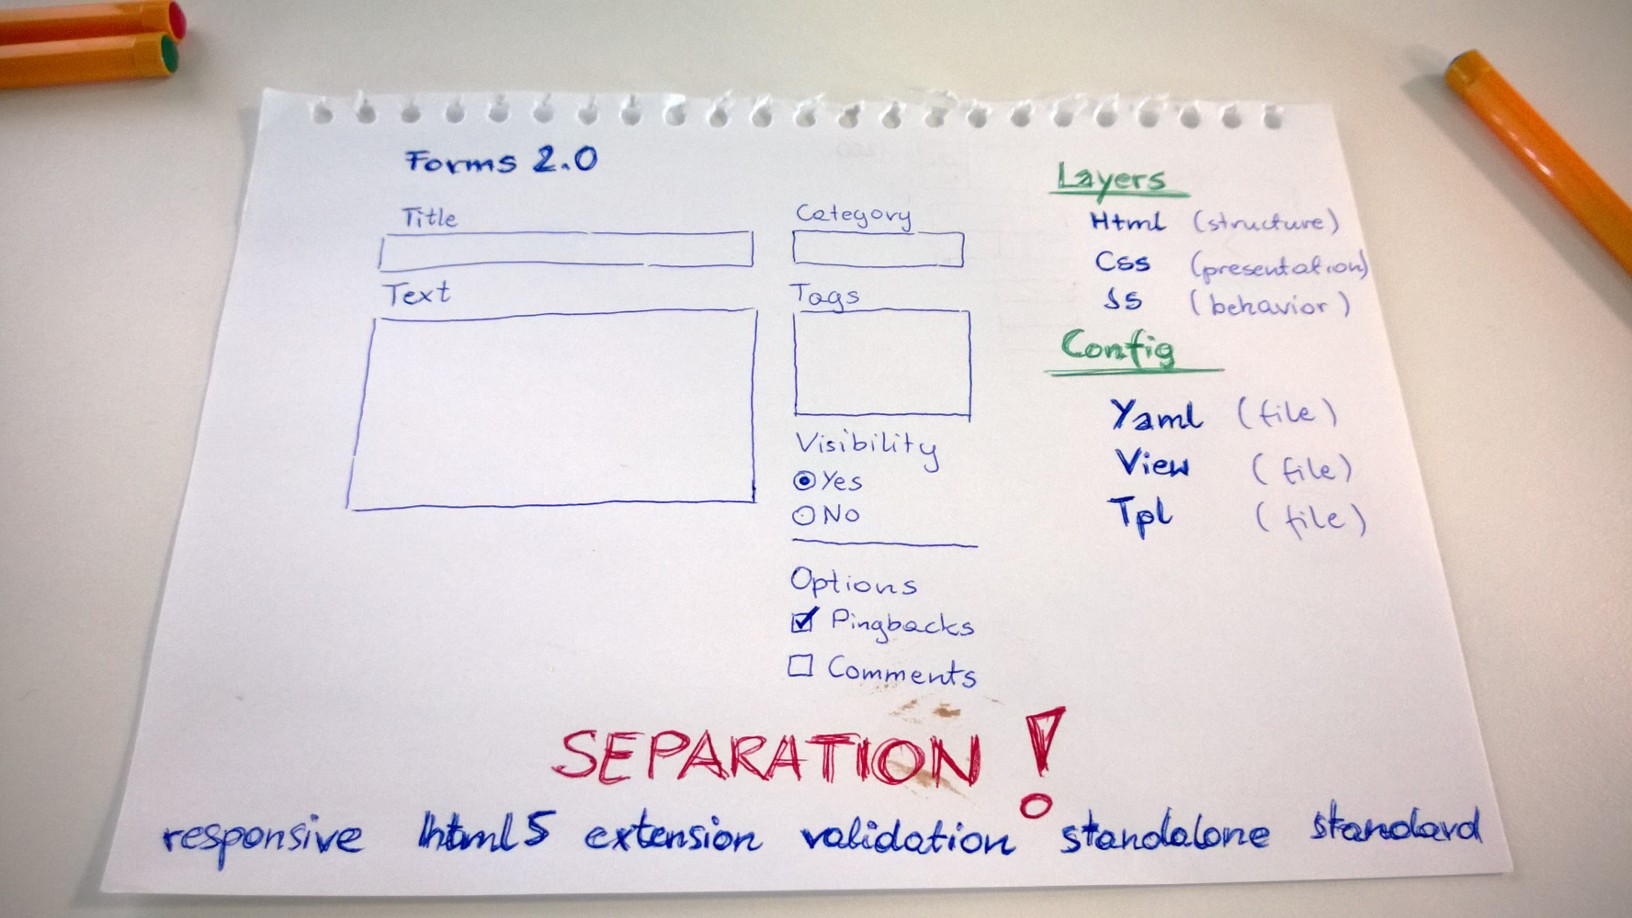 Forms 2.0
Title
Text
Category
Tags
Visibility
Yes
No
Options
Pingbacks
Comments
Layers
Html (structure)
Css (presentation)
JS (behavior)
Config
Yaml (file)
View (file)
Tpl (file)
SEPARATION!
responsive html5 extension validation standalone standard